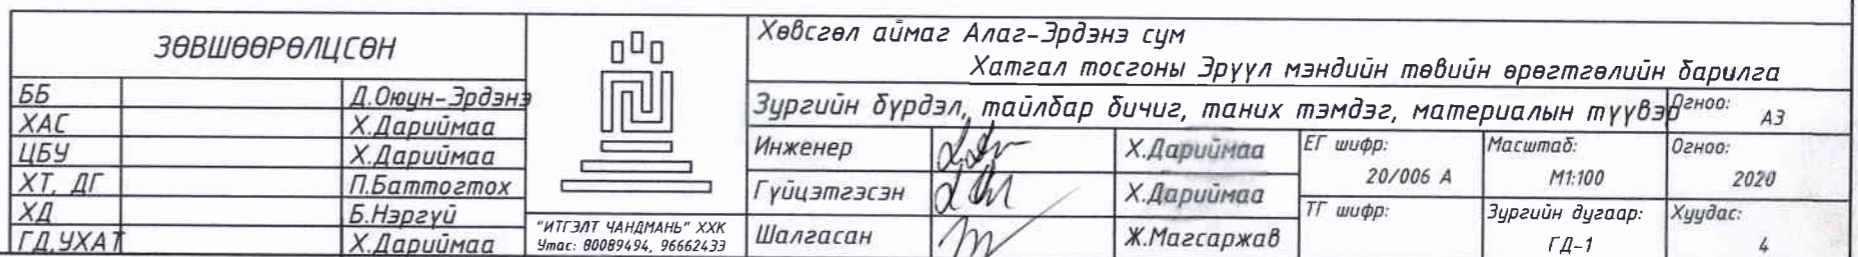 ЗӨВШӨӨРӨЛЦСӨН
ББ Д.Оюун-Эрдэнэ
ХАС Х.Дариймаа
ЦБУ Х.Дариймаа
ХТ, ДГ П.Баттогтох
ХД Б.Нэргүй
ГД,УХАТ Х.Дариймаа
"ИТГЭЛТ ЧАНДМАНЬ" ХХК
Утас: 80089494, 96662433
Хөвсгөл аймаг Алаг-Эрдэнэ сум
Хатгал тосгоны Эрүүл мэндийн төвийн өрөгтгөлийн барилга
Зургийн бүрдэл, тайлбар бичиг, таних тэмдэг, материалын түүвэр
Огноо:
А3
Инженер Х.Дариймаа
Гүйцэтгэсэн Х.Дариймаа
Шалгасан Ж.Магсаржав
ЕГ шифр:
20/006 А
Масштаб:
М1:100
Огноо:
2020
ТГ шифр:
Зургийн дугаар:
ГД-1
Хуудас:
4